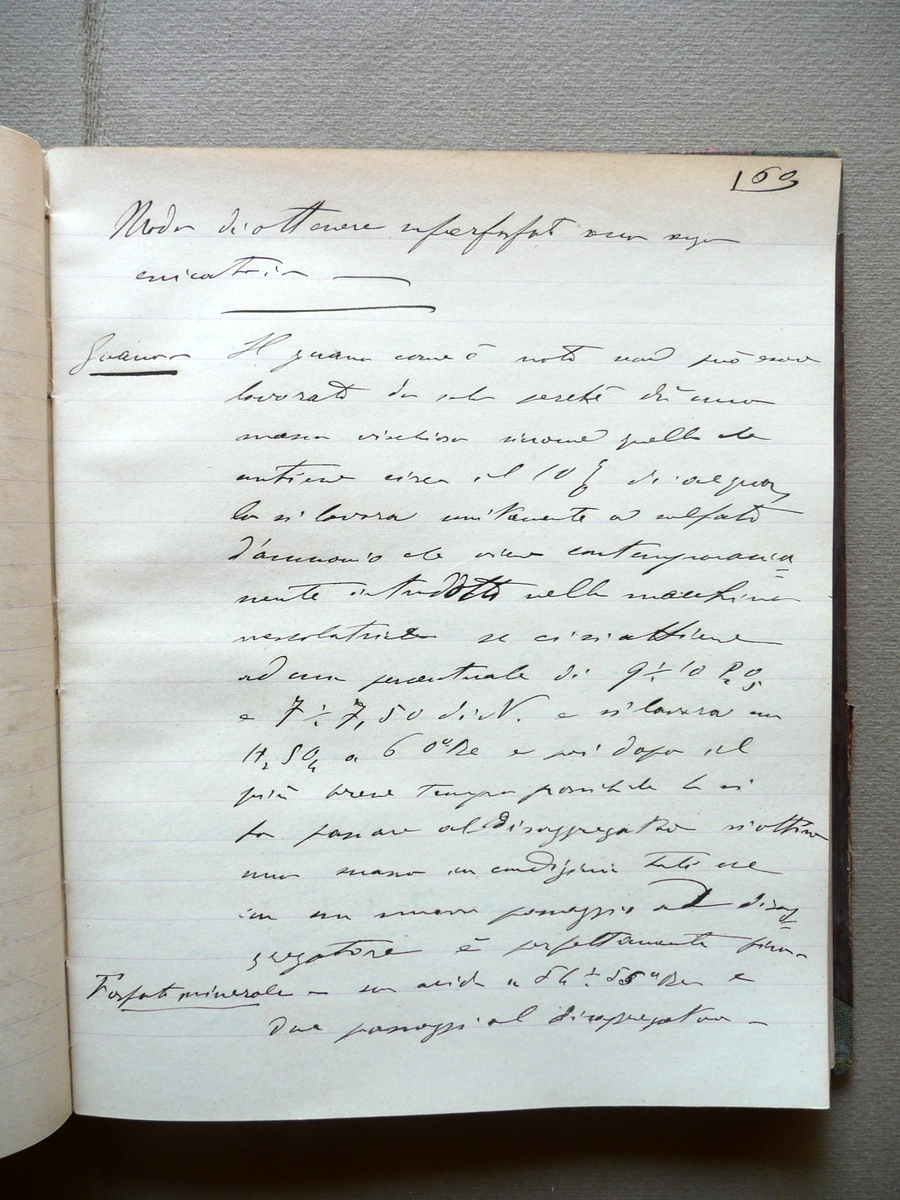 163
Modo di ottenere superfosfati senza
Guano Il guano come è noto non può essere
lavorato da solo perché dà una
massa vischiosa siccome quello che
contiene circa il 10 % di acqua
lo si lavora unitamente a solfato
d'ammonio che viene contemporanea=
mente introdotto nella macchina
mescolatrice se ci si attiene
ad una percentuale di 9 ÷ 10 P2O5
e 7 ÷ 7,50 di N. e si lavora con
H2SO4 a 60°Be e poi dopo il
più breve tempo possibile lo si
fa passare al disaggregatore si ottiene
una massa in condizioni tali che
con un nuovo passaggio al disag=
gregatore è perfettamente
Fosfati minerale con acido a 54 ÷ 55°Be e
due passaggi al disaggregatore